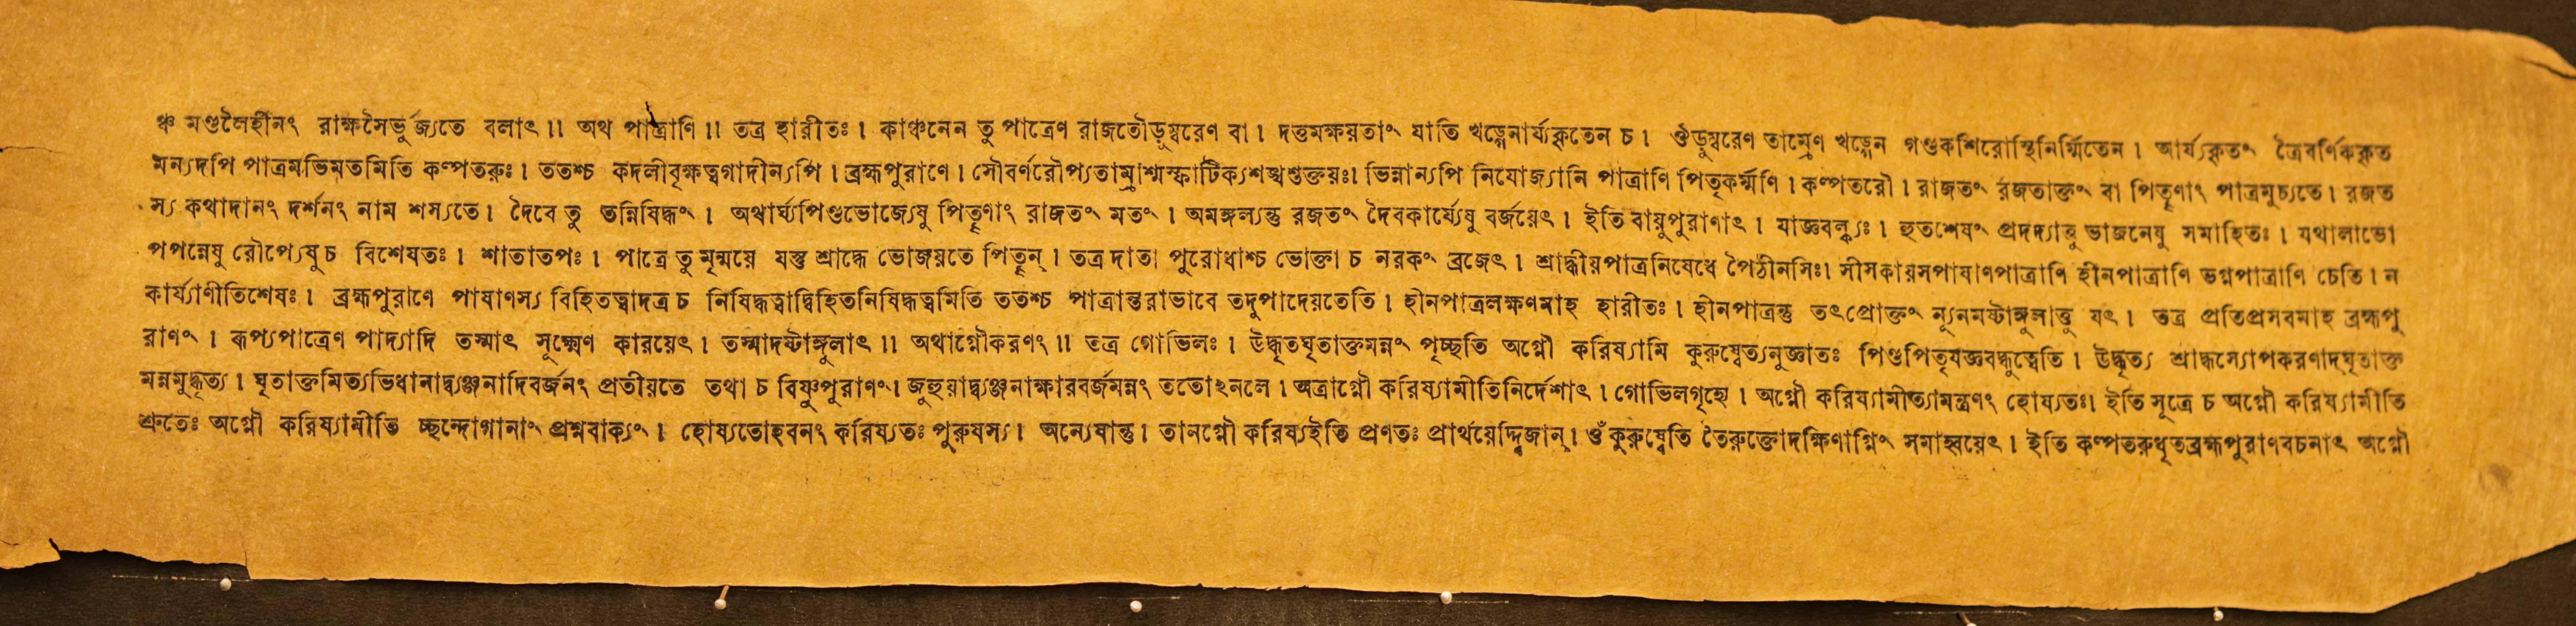 ঞ্চ মণ্ডলৈর্হীনং রাক্ষসৈর্ভুজ্যতে বলাৎ॥ অথ পাত্রাণি॥ তত্র হারীতঃ। কাঞ্চনেন তু পাত্রেণ রাজতৌড়ুম্বরেণ বা। দত্তমক্ষয়তাং যাতি খড়্গেনার্য্যকৃতেন চ। ঔড়ুম্বরেণ তাম্রেণ খড়্গেন গণ্ডকশিরোস্থিনির্ম্মিতেন। আর্য্যকৃতং ত্রৈবর্ণিককৃত
মন্যদপি পাত্রমভিমতমিতি কল্পতরুঃ। ততশ্চ কদলীবৃক্ষত্বগাদীন্যপি। ব্রহ্মপুরাণে। সৌবর্ণরৌপ্যতাম্রাশ্মস্ফাটিক্যশঙ্খশুক্তয়ঃ। ভিন্নান্যপি নিযোজ্যানি পাত্রাণি পিতৃকর্ম্মণি। কল্পতরৌ। রাজতং রজতাক্তং বা পিতৄণাং পাত্রমুচ্যতে। রজত
স্য কথাদানং দর্শনং নাম শস্যতে। দৈবে তু তন্নিষিদ্ধং। অথার্ঘ্যপিণ্ডভোজ্যেষু পিতৄণাং রাজতং মতং। অমঙ্গল্যন্তু রজতং দৈবকার্য্যেষু বর্জয়েৎ। ইতি বায়ুপুরাণাৎ। যাজ্ঞবল্ক্যঃ। হুতশেষং প্রদদ্যাত্তু ভাজনেষু সমাহিতঃ। যথালাভো
পপন্নেষু রৌপ্যেষু চ বিশেষতঃ। শাতাতপঃ। পাত্রে তু মৃন্ময়ে যস্তু শ্রাদ্ধে ভোজয়তে পিতৄন্। তত্র দাতা পুরোধাশ্চ ভোক্তা চ নরকং ব্রজেৎ। শ্রাদ্ধীয়পাত্রনিষেধে পৈঠীনসিঃ। সীসকায়সপাষাণপাত্রাণি হীনপাত্রাণি ভগ্নপাত্রাণি চেতি। ন
কার্য্যাণীতিশেষঃ। ব্রহ্মপুরাণে পাষাণস্য বিহিতত্বাদত্র চ নিষিদ্ধত্বাদ্বিহিতনিষিদ্ধত্বমিতি ততশ্চ পাত্রান্তরাভাবে তদুপাদেয়তেতি। হীনপাত্রলক্ষণমাহ হারীতঃ। হীনপাত্রন্তু তৎপ্রোক্তং ন্যূনমষ্টাঙ্গুলাত্তু যৎ। তত্র প্রতিপ্রসবমাহ ব্রহ্মপু
রাণং। রূপ্যপাত্রেণ পাদ্যাদি তস্মাৎ সূক্ষ্মেণ কারয়েৎ। তস্মাদষ্টাঙ্গুলাৎ॥ অথাগ্নৌকরণং॥ তত্র গোভিলঃ। উদ্ধৃতঘৃতাক্তমন্নং পৃচ্ছতি অগ্নৌ করিষ্যামি কুরুষ্বেত্যনুজ্ঞাতঃ পিণ্ডপিতৃযজ্ঞবদ্ধুত্বেতি। উদ্ধৃত্য শ্রাদ্ধস্যোপকরণাদ্ঘৃতাক্ত
মন্নমুদ্ধৃত্য। ঘৃতাক্তমিত্যভিধানাদ্ব্যঞ্জনাদিবর্জনং প্রতীয়তে তথা চ বিষ্ণুপুরাণং। জুহুয়াদ্ব্যঞ্জনাক্ষারবর্জমন্নং ততোঽনলে। অত্রাগ্নৌ করিষ্যামীতিনির্দেশাৎ। গোভিলগৃহ্যে। অগ্নৌ করিষ্যামীত্যামন্ত্রণং হোষ্যতঃ। ইতি সূত্রে চ অগ্নৌ করিষ্যামীতি
শ্রুতেঃ অগ্নৌ করিষ্যামীতি চ্ছন্দোগানাং প্রশ্নবাক্যং। হোষ্যতোহবনং করিষ্যতঃ পুরুষস্য। অন্যেষান্তু। তানগ্নৌ করিষ্যইতি প্রণতঃ প্রার্থয়েদ্দ্বিজান্। ওঁ কুরুষ্বেতি তৈরুক্তোদক্ষিণাগ্নিং সমাহ্বয়েৎ। ইতি কল্পতরুধৃতব্রহ্মপুরাণবচনাৎ অগ্নৌ